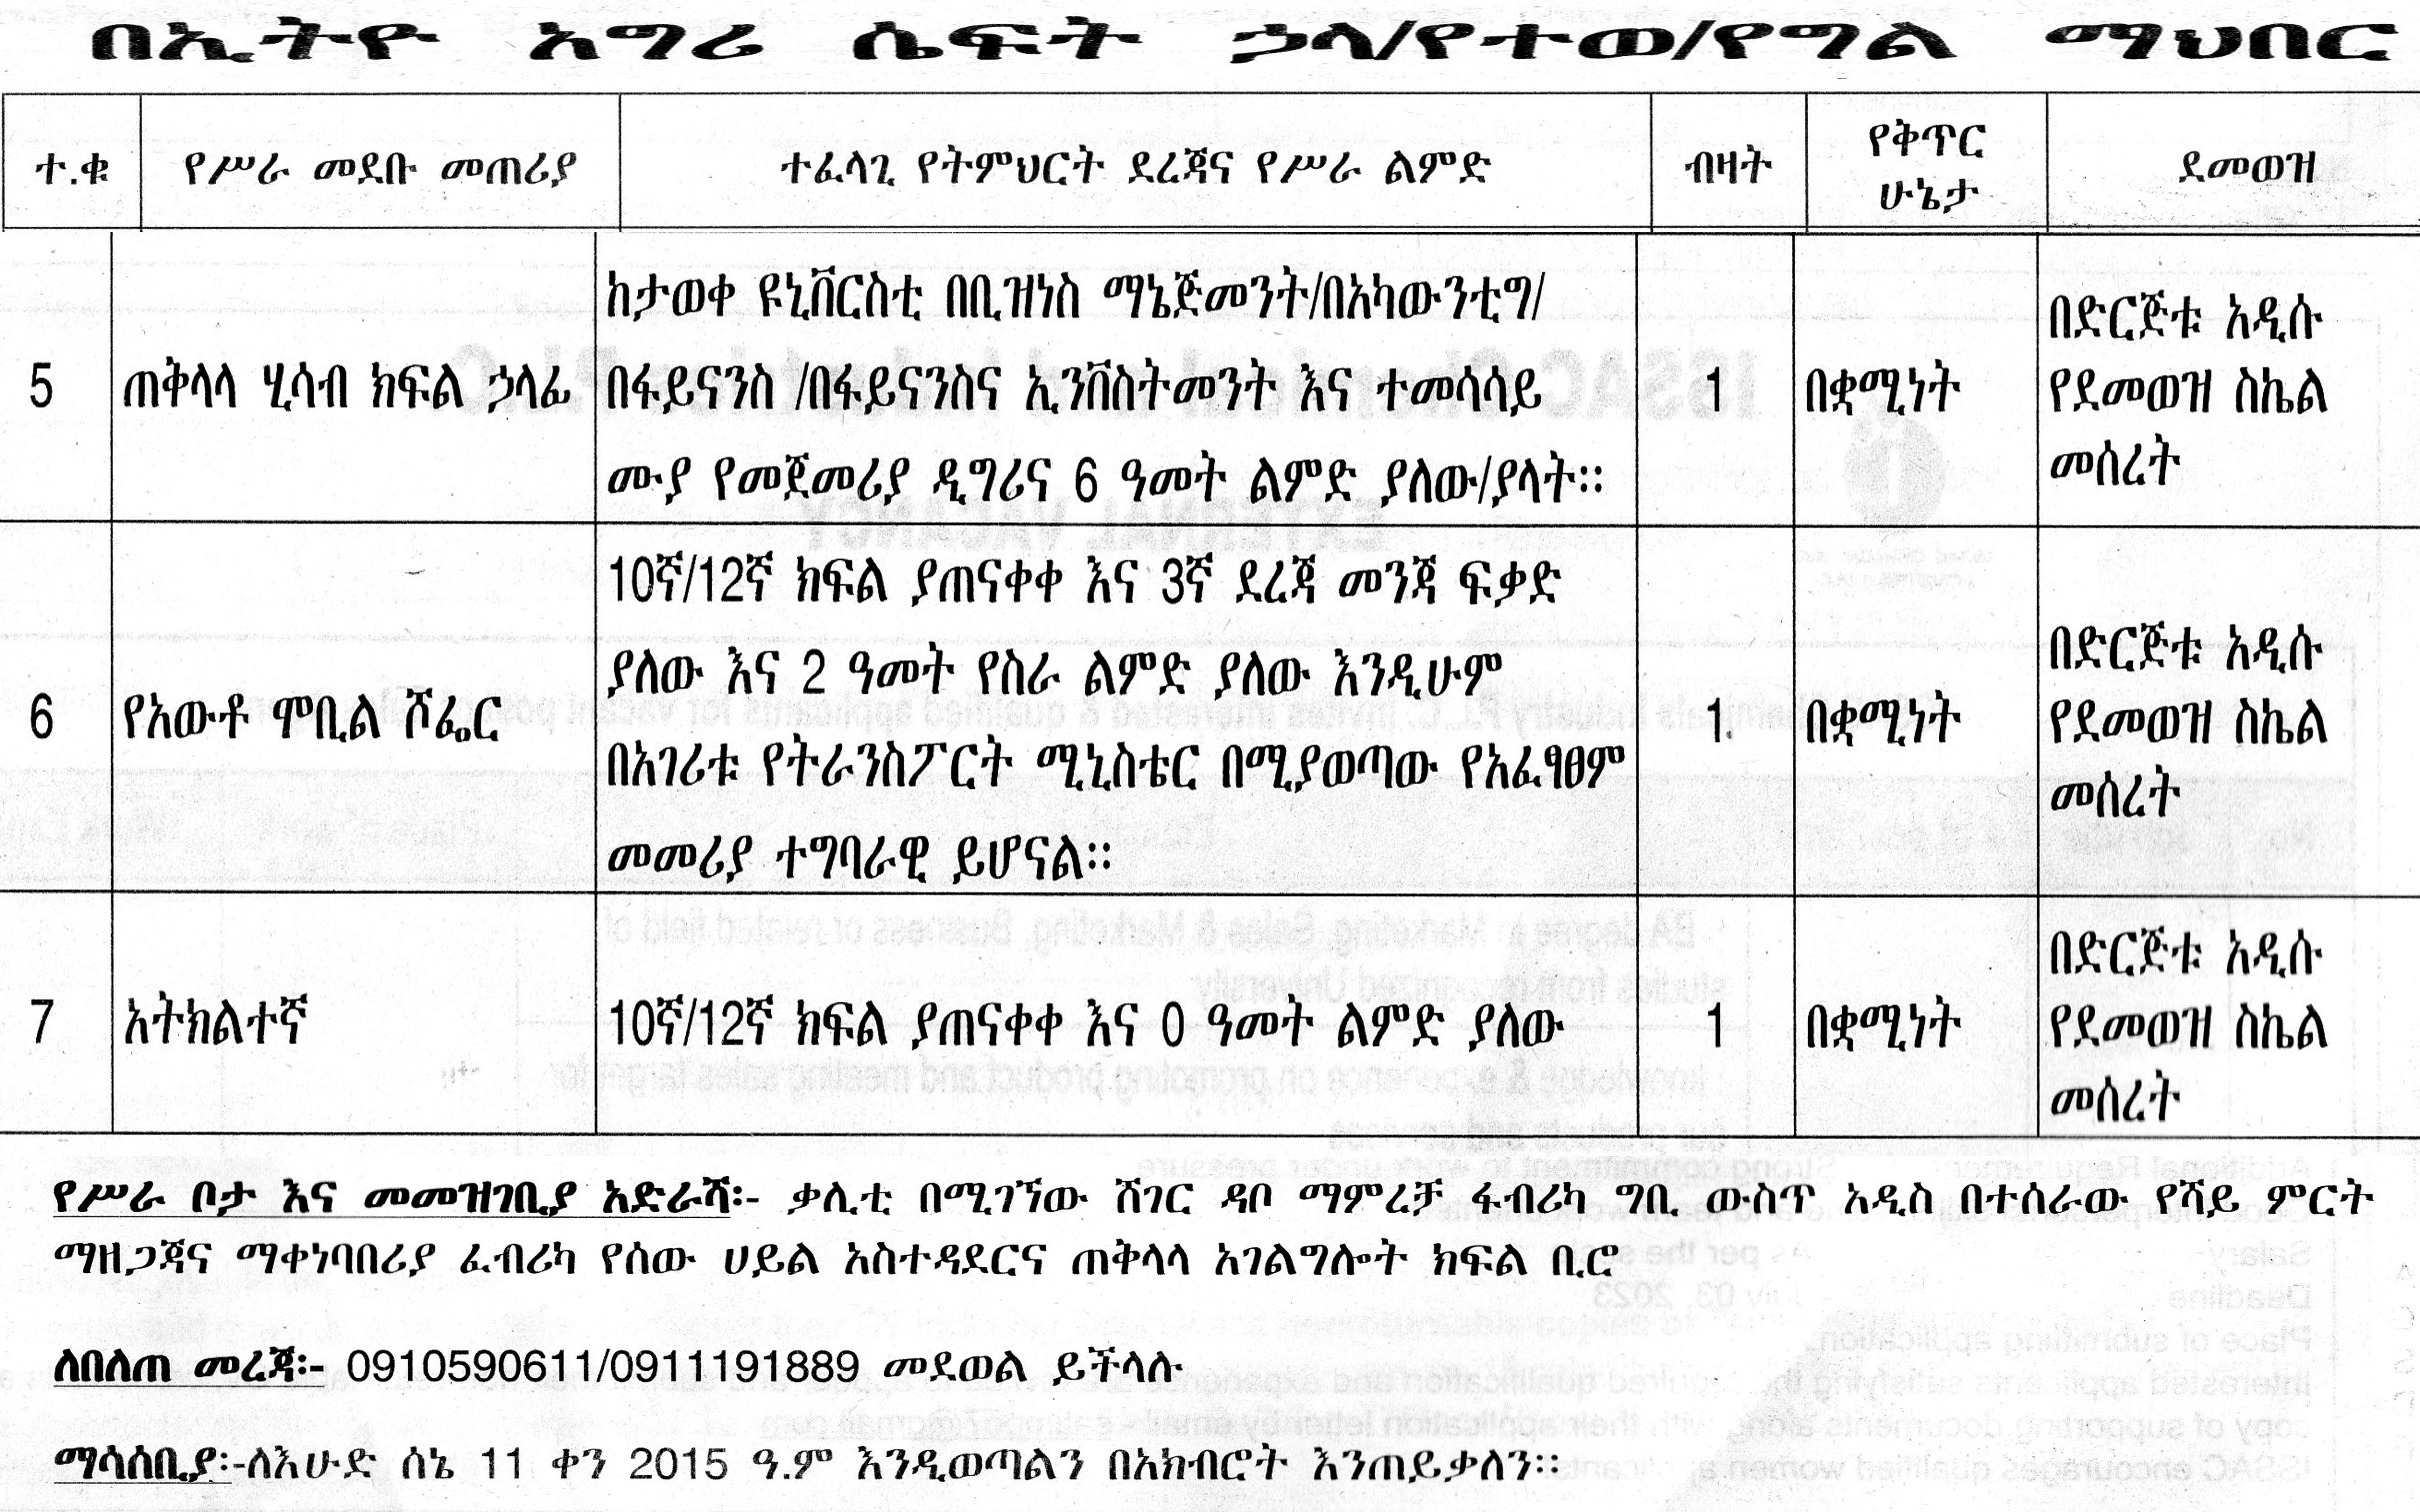 በኢትዮ አግሪ ሴፍት ኃላ/የተወ/የግል ማህበር
ተ.ቁ የሥራ መደቡ መጠሪያ ተፈላጊ የትምህርት ደረጃና የሥራ ልምድ ብዛት የቅጥር ሁኔታ ደመወዝ
5 ጠቅላላ ሂሳብ ክፍል ኃላፊ
ከታወቀ ዩኒቨርስቲ በቢዝነስ ማኔጅመንት/በአካውንቲግ/
በፋይናንስ /በፋይናንስና ኢንቨስትመንት እና ተመሳሳይ
ሙያ የመጀመሪያ ዲግሪና 6 ዓመት ልምድ ያለው/ያላት።
1 በቋሚነት
በድርጅቱ አዲሱ
የደመወዝ ስኬል
መሰረት
6 የአውቶ ሞቢል ሾፌር
10ኛ/12ኛ ክፍል ያጠናቀቀ እና 3ኛ ደረጃ መንጃ ፍቃድ
ያለው እና 2 ዓመት የስራ ልምድ ያለው እንዲሁም
በአገሪቱ የትራንስፖርት ሚኒስቴር በሚያወጣው የአፈፃፀም
መመሪያ ተግባራዊ ይሆናል።
1 በቋሚነት
በድርጅቱ አዲሱ
የደመወዝ ስኬል
መሰረት
7 አትክልተኛ
10ኛ/12ኛ ክፍል ያጠናቀቀ እና 0 ዓመት ልምድ ያለው
1 በቋሚነት
በድርጅቱ አዲሱ
የደመወዝ ስኬል
መሰረት
የሥራ ቦታ እና መመዝገቢያ አድራሻ፡- ቃሊቲ በሚገኘው ሸገር ዳቦ ማምረቻ ፋብሪካ ግቢ ውስጥ አዲስ በተሰራው የሻይ ምርት
ማዘጋጃና ማቀነባበሪያ ፈብሪካ የሰው ሀይል አስተዳደርና ጠቅላላ አገልግሎት ክፍል ቢሮ
ለበለጠ መረጃ፡- 0910590611/0911191889 መደወል ይችላሉ
ማሳሰቢያ፡-ለእሁድ ሰኔ 11 ቀን 2015 ዓ.ም እንዲወጣልን በአክብሮት እንጠይቃለን።